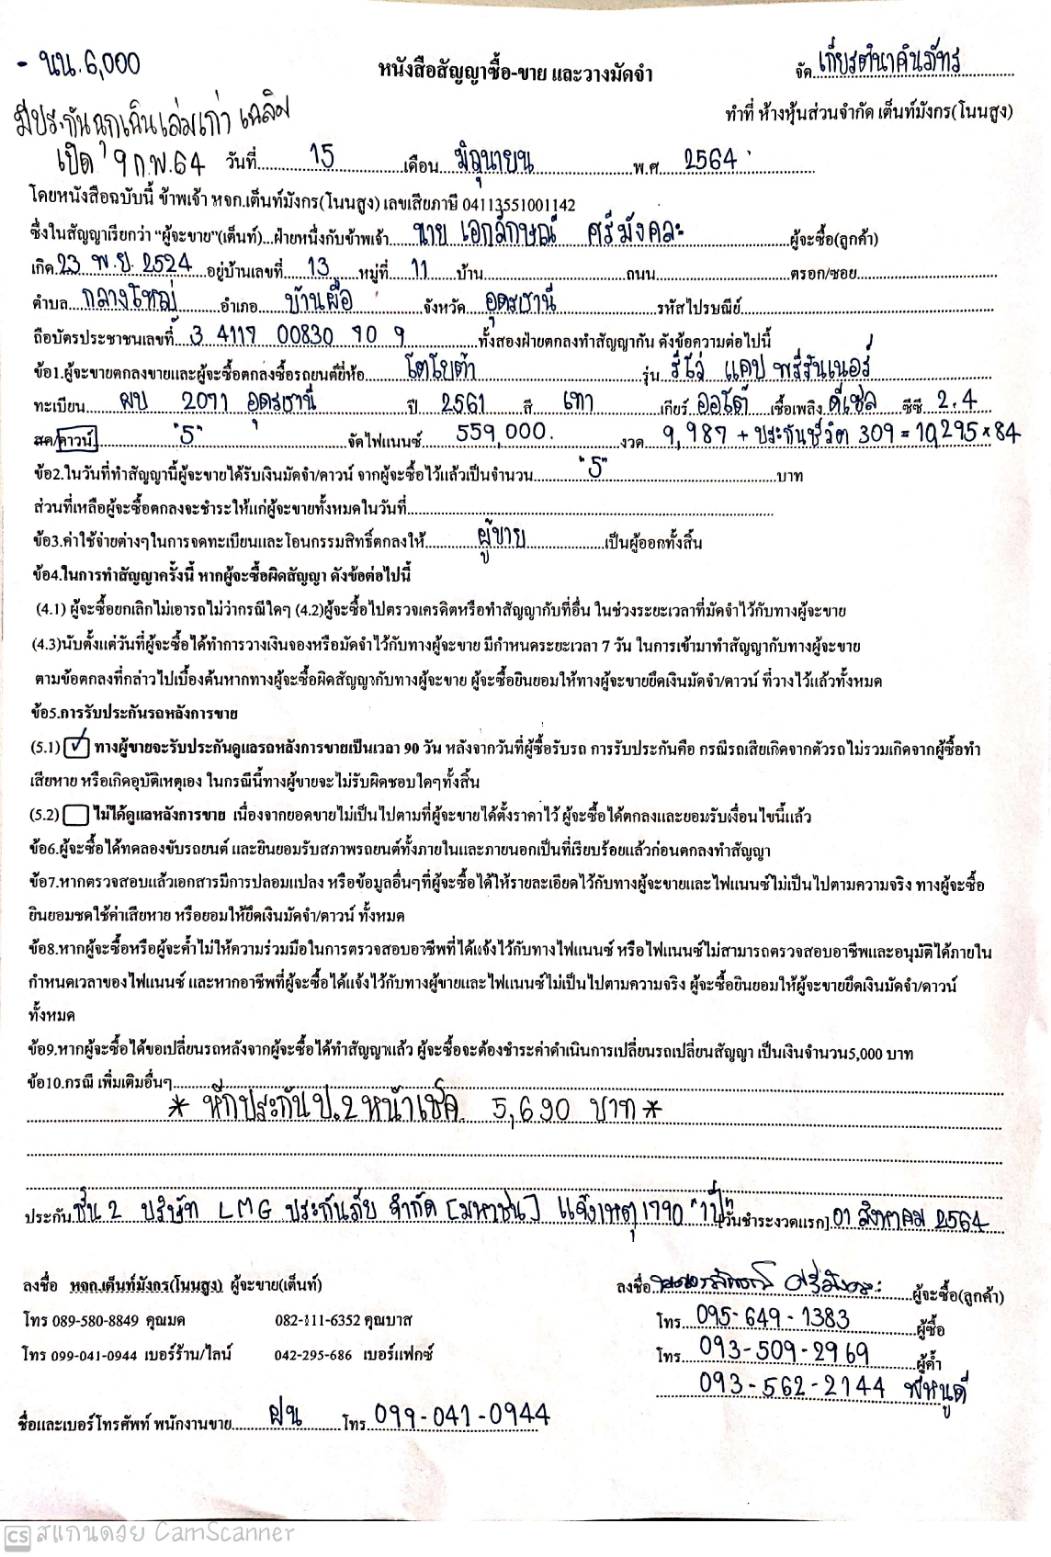 - นน.6,000
หนังสือสัญญาซื้อ-ขาย และวางมัดจำ
จัด เกียรตินาคินภัทร
มีประกันฉุกเฉินเล่มเก่า เฉลิม
ทำที่ ห้างหุ้นส่วนจำกัด เต็นท์มังกร(โนนสูง)
เปิด 9 ก.พ.64 วันที่ 15 เดือน มิถุนายน พ.ศ 2564
โดยหนังสือฉบับนี้ ข้าพเจ้า หจก.เต็นท์มังกร(โนนสูง) เลขเสียภาษี 04113551001142
ซึ่งในสัญญาเรียกว่า "ผู้จะขาย"(เต็นท์)...ฝ่ายหนึ่งกับข้าพเจ้า นาย เอกลักษณ์ ศรีมังคละ ผู้จะซื้อ(ลูกค้า)
เกิด 23 พ.ย. 2524 อยู่บ้านเลขที่ 13 หมู่ที่ 11 บ้าน ถนน ตรอก/ซอย
ตำบล กลางใหญ่ อำเภอ บ้านผือ จังหวัด อุดรธานี รหัสไปรษณีย์
ถือบัตรประชาชนเลขที่ 3 4117 00830 70 9 ทั้งสองฝ่ายตกลงทำสัญญากัน ดังข้อความต่อไปนี้
ข้อ1.ผู้จะขายตกลงขายและผู้จะซื้อตกลงซื้อรถยนต์ยี่ห้อ โตโยต้า รุ่น รีโว่ แคป พรีรันเนอร์
ทะเบียน ผบ 2071 อุดรธานี ปี 2561 สี เทา เกียร์ ออโต้ เชื้อเพลิง ดีเซล ซีซี 2.4
สด/ดาวน์ "5" จัดไฟแนนซ์ 559,000. งวด 9,987 + ประกันชีวิต 309 = 10,295 × 84
ข้อ2.ในวันที่ทำสัญญานี้ผู้จะขายได้รับเงินมัดจำ/ดาวน์ จากผู้จะซื้อไว้แล้วเป็นจำนวน "5" บาท
ส่วนที่เหลือผู้จะซื้อตกลงจะชำระให้แก่ผู้จะขายทั้งหมดในวันที่
ข้อ3.ค่าใช้จ่ายต่างๆในการจดทะเบียนและโอนกรรมสิทธิ์ตกลงให้ ผู้ขาย เป็นผู้ออกทั้งสิ้น
ข้อ4.ในการทำสัญญาครั้งนี้ หากผู้จะซื้อผิดสัญญา ดังข้อต่อไปนี้
(4.1) ผู้จะซื้อยกเลิกไม่เอารถไม่ว่ากรณีใดๆ (4.2)ผู้จะซื้อไปตรวจเครดิตหรือทำสัญญากับที่อื่น ในช่วงระยะเวลาที่มัดจำไว้กับทางผู้จะขาย
(4.3)นับตั้งแต่วันที่ผู้จะซื้อได้ทำการวางเงินจองหรือมัดจำไว้กับทางผู้จะขาย มีกำหนดระยะเวลา 7 วัน ในการเข้ามาทำสัญญากับทางผู้จะขาย
ตามข้อตกลงที่กล่าวไปเบื้องต้นหากทางผู้จะซื้อผิดสัญญากับทางผู้จะขาย ผู้จะซื้อยินยอมให้ทางผู้จะขายยึดเงินมัดจำ/ดาวน์ ที่วางไว้แล้วทั้งหมด
ข้อ5.การรับประกันรถหลังการขาย
(5.1) ✓ ทางผู้ขายจะรับประกันดูแลรถหลังการขายเป็นเวลา 90 วัน หลังจากวันที่ผู้ซื้อรับรถ การรับประกันคือ กรณีรถเสียเกิดจากตัวรถ ไม่รวมเกิดจากผู้ซื้อทำ
เสียหาย หรือเกิดอุบัติเหตุเอง ในกรณีนี้ทางผู้ขายจะไม่รับผิดชอบใดๆทั้งสิ้น
(5.2) ไม่ได้ดูแลหลังการขาย เนื่องจากยอดขายไม่เป็นไปตามที่ผู้จะขายได้ตั้งราคาไว้ ผู้จะซื้อได้ตกลงและยอมรับเงื่อนไขนี้แล้ว
ข้อ6.ผู้จะซื้อได้ทดลองขับรถยนต์ และยินยอมรับสภาพรถยนต์ทั้งภายในและภายนอกเป็นที่เรียบร้อยแล้วก่อนตกลงทำสัญญา
ข้อ7.หากตรวจสอบแล้วเอกสารมีการปลอมแปลง หรือข้อมูลอื่นๆที่ผู้จะซื้อได้ให้รายละเอียดไว้กับทางผู้จะขายและไฟแนนซ์ไม่เป็นไปตามความจริง ทางผู้จะซื้อ
ยินยอมชดใช้ค่าเสียหาย หรือยอมให้ยึดเงินมัดจำ/ดาวน์ ทั้งหมด
ข้อ8.หากผู้จะซื้อหรือผู้จะค้ำไม่ให้ความร่วมมือในการตรวจสอบอาชีพที่ได้แจ้งไว้กับทางไฟแนนซ์ หรือไฟแนนซ์ไม่สามารถตรวจสอบอาชีพและอนุมัติได้ภายใน
กำหนดเวลาของไฟแนนซ์ และหากอาชีพที่ผู้จะซื้อได้แจ้งไว้กับทางผู้ขายและไฟแนนซ์ไม่เป็นไปตามความจริง ผู้จะซื้อยินยอมให้ผู้จะขายยึดเงินมัดจำ/ดาวน์
ทั้งหมด
ข้อ9.หากผู้จะซื้อได้ขอเปลี่ยนรถหลังจากผู้จะซื้อได้ทำสัญญาแล้ว ผู้จะซื้อจะต้องชำระค่าดำเนินการเปลี่ยนรถเปลี่ยนสัญญา เป็นเงินจำนวน5,000 บาท
ข้อ10.กรณี เพิ่มเติมอื่นๆ
* หักประกันป.2 หน้าเช็ค 5,690 บาท *
ประกัน ชั้น 2 บริษัท LMG ประกันภัย จำกัด [มหาชน] แจ้งเหตุ 1790 "1ปี" [วันชำระงวดแรก] 01 สิงหาคม 2564
ลงชื่อ หจก.เต็นท์มังกร(โนนสูง) ผู้จะขาย(เต็นท์)
ลงชื่อ ผู้จะซื้อ(ลูกค้า)
โทร 089-580-8849 คุณมด 082-111-6352 คุณบาส
โทร 095-649-1383 ผู้ซื้อ
โทร 099-041-0944 เบอร์ร้าน/ไลน์ 042-295-686 เบอร์แฟกซ์
โทร 093-509-2969 ผู้ค้ำ
093-562-2144 พี่หนูดี
ชื่อและเบอร์โทรศัพท์ พนักงานขาย ฝน โทร 099-041-0944
CS สแกนด้วย CamScanner